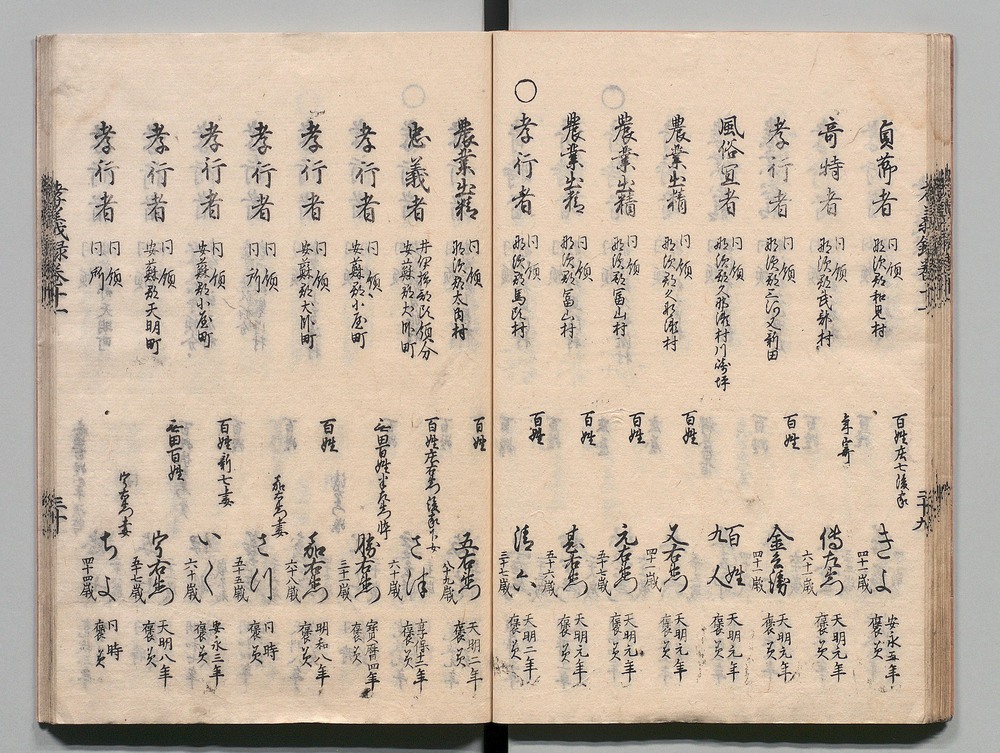 孝義録巻十一
二十九
貞節者 同領 那須郡和見村 百姓庄七後家 きよ 四十二歳 安永五年褒美
奇特者 同領 那須郡 村 年寄 傳右衛門 天明元年褒美
孝行者 同領 那須郡三河又新田 百姓 金右衛門 四十一歳 天明元年褒美
風俗宜者 同領 那須郡久那瀬村川崎坪 百姓 九人 天明元年褒美
農業出精 同領 那須郡久那瀬村 百姓 又右衛門 四十二歳 天明元年褒美
農業出精 同領 那須郡冨山村 百姓 元右衛門 五十三歳 天明元年褒美
農業出精 同領 那須郡冨山村 百姓 甚右衛門 五十六歳 天明元年褒美
○孝行者 同領 那須郡馬頭村 百姓 清六 三十七歳 天明二年褒美
農業出精 同領 那須郡大内村 百姓 五右衛門 八十九歳 天明二年褒美
忠義者 井伊掃部頭領分 安蘇郡犬伏町 百姓 後家下女 さは 六十歳 享保十二年褒美
孝行者 同領 安蘇郡小屋町 百姓 忰 勝右衛門 三十一歳 寳暦四年褒美
孝行者 同領 安蘇郡犬伏町 百姓 嘉右衛門 六十八歳 明和八年褒美
孝行者 同領 同所 嘉右衛門妻 さつ 五十五歳 同時褒美
孝行者 同領 安蘇郡小屋町 百姓新七妻 いく 六十歳 安永三年褒美
孝行者 同領 安蘇郡天明町 百姓 宇右衛門 五十七歳 天明八年褒美
孝行者 同領 同所 宇右衛門妻 ちよ 四十四歳 同時褒美
孝義録巻十一
三十